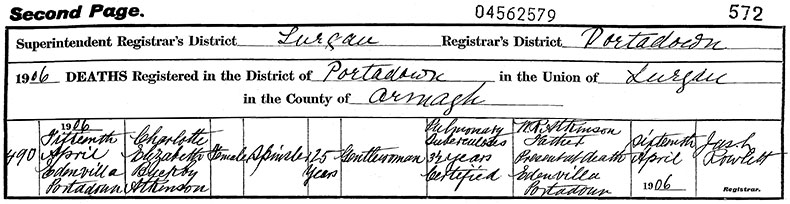 Second Page. 04562579 572
Superintendent Registrar's District Lurgan Registrar's District Portadown
1906 DEATHS Registered in the District of Portadown in the Union of Lurgan
in the County of Armagh
490
1906
Fifteenth
April
Edenvilla
Portadown
Charlotte
Elizabeth
Atkinson
Female
Spinster
25
Years
Gentlewoman
Pulmonary
Tuberculosis
Years
Certified
W.R. Atkinson
Father
Present at death
Edenvilla
Portadown
Sixteenth
April
1906
Jas L
Rowlett
Registrar.